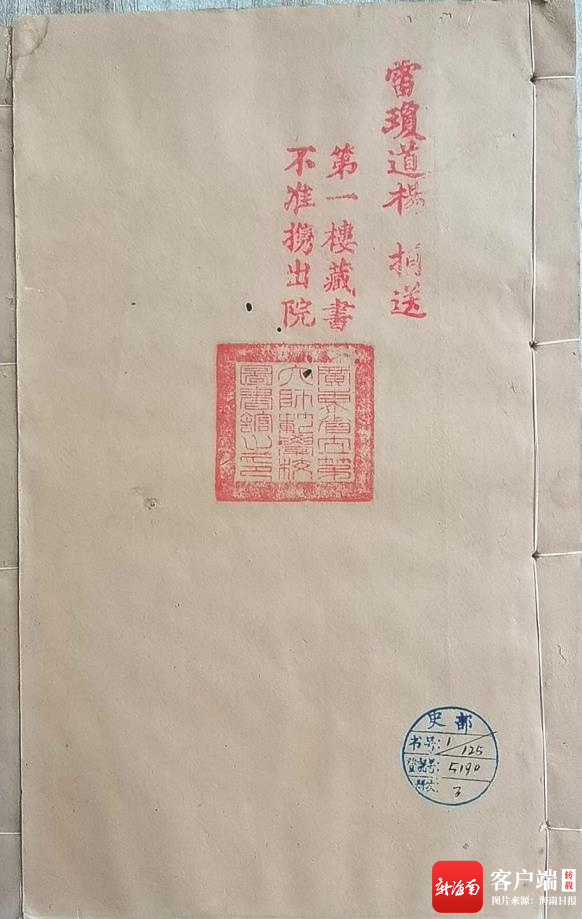 雷瓊道楊 捐送
第一樓藏書
不准携出院
廣東省立第
六師範學校
圖書館之印
史部
书号: 1/125
登记号: 5190
3
新海南 客户端 转载
图片来源：海南日报